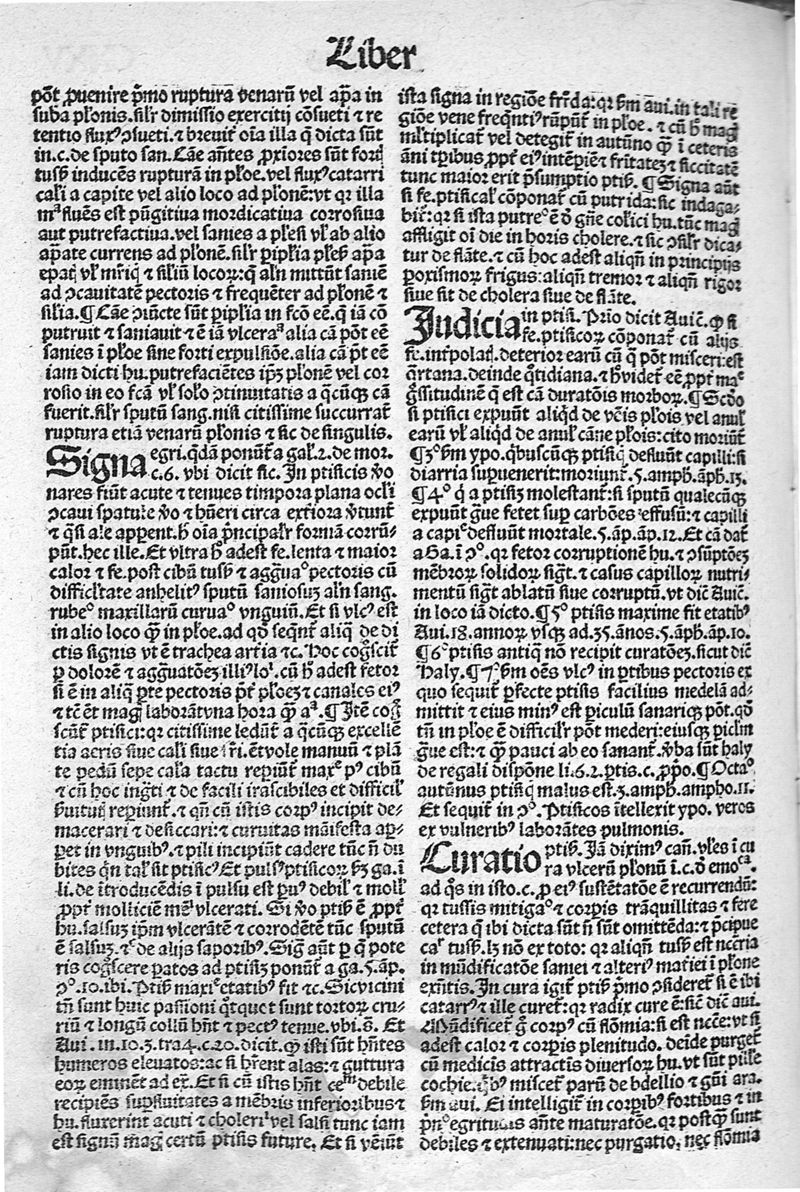 Liber
põt ꝓuenire p̃mo rupturã venarũ vel ap̃a in
suba pl̃onis. sil̃r dimissio exercitij cõsueti ⁊ re
tentio flux⁹ ↄsueti. ⁊ breuit̃ oĩa illa q̃ dicta sũt
in.c.de sputo san. Cãe añtes ꝓxiores sũt ford̃
tuss̃ inducẽs rupturã in pl̃oe. vel flux⁹ catarri
cal̃i a capite vel alio loco ad pl̃onẽ: vt qr illa
mᵃ fluẽs est pũgitiua mordicatiua corrosiua
aut putrefactiua. vel sanies a pl̃esi vl̃ ab alio
ap̃ate currens ad pl̃onẽ. sil̃r ꝑipl̃ia pleš ap̃a
epatĩ vl̃ mr̃icĩ ⁊ sil̃iũ locoꝝ: q̃ al̃n mittũt saniẽ
ad ↄcauitatẽ pectoris ⁊ frequẽter ad pl̃onẽ ⁊
sil̃ia. ¶ Cãe ↄiũcte sũt ꝑipl̃ia in fcõ eẽ. q̃ iã cõ
putruit ⁊ saniauit ⁊ ẽ iã vlceraᵃ alia cã põt eẽ
sanies ĩ pl̃oe sine forti expulsiõe. alia cã p̃t eẽ
iam dicti hu. putrefaciẽtes ip̃ꝫ pl̃onẽ vel cor
rosio in eo fcã vl̃ solo ↄtinuitatis a q̃cũqꝫ cã
fuerit. sil̃r sputũ sang. nisi citissime succurrat̃
ruptura etiã venarũ pl̃onis ⁊ sic de singulis.
Signa egri. q̃dã ponũt̃ a gal̃. 2. de mor.
c. 6. vbi dicit sic. In ptisicis ṽo
nares fiũt acute ⁊ tenues timpora plana ocl̃i
ↄcaui spatule ṽo ⁊ hũeri circa exťiora ṽtunt̃
⁊ q̃si ale apparent. h̃ oĩa p̃ncipal̃r formã corrũ-
pũt. hec ille. Et vltra h̃ adest fe. lenta ⁊ maior
calor ⁊ fe. post cibũ tuss̃ ⁊ agg̃ua⁹ pectoris cũ
difficl̃tate anhelit⁹ sputũ saniosuꝫ al̃n sang.
rube⁹ maxillarũ curua⁹ vnguiũ. Et si vlc⁹ est
in alio loco q̃ꝫ in pl̃oe. ad qd̃ seqñt̃ aliq̃ de di
ctis signis vt ẽ trachea arťia ⁊c. Hoc cog̃scit̃
ꝑ dolorẽ ⁊ agg̃uatõeꝫ illi⁹ loⁱ. cũ h̃ adest fetor
si ẽ in aliq̃ ꝑte pectoris p̃ť pl̃oeꝫ ⁊ canales ei⁹
⁊ tẽ ẽt mag̃ laborãt vna hora q̃ꝫ aᵃ. ¶ Itẽ cog̃
scũt̃ ptisici: qr citissime ledũt̃ a q̃cũqꝫ excellẽ
tia aeris siue cal̃i siue fr̃i. ẽt vole manuũ ⁊ plã
te pedũ sepe cal̃a tactu reꝑiũt̃ maxᵉ p⁹ cibũ
⁊ cũ hoc ing̃ti ⁊ de facili irascibiles et difficil̃
ṽuituĩ reꝑiunt̃. ⁊ qñ cũ istis corp⁹ incipit de-
macerari ⁊ desiccari: ⁊ curuitas mãifesta ap-
ꝑet in vnguib⁹. ⁊ pili incipiũt cadere tũc ñ du
bites q̃n tal̃ sit ptisic⁹ Et puls⁹ ptisicoꝝ ẜm ga. ĩ
li. de ĩtroducẽdis ĩ pulsu est ꝑu⁹ debil̃ ⁊ moll̃
ꝓpť molliciẽ mẽƀ vlcerati. Si ṽo ptiš ẽ ꝓpť
hu. salsuꝫ ip̃m vlcerãtẽ ⁊ corrodẽtẽ tũc sputũ
ẽ salsuꝫ. ⁊ᶜ de alijs saporib⁹. Sig̃ aũt ꝑ q̃ pote
ris cog̃scere ꝑatos ad ptisiꝫ ponũt̃ a ga. 5. ap̃.
ↄ⁹. 10. ibi. Ptiš maxi⁹ etatib⁹ fit ⁊c. Sic vicini
tm̃ sunt huic passioni q̃tquet sunt tortoꝝ cru-
riũ ⁊ longũ collũ hñt ⁊ pect⁹ tenue. vbi. 8. Et
Aui. in. 10. 3. tra 4. c. 20. dicit. q̃ isti sũt hñtes
humeros eleuatos: ac si hr̃ent alas: ⁊ guttura
eoꝝ eminẽt ad ex̃. Et si cũ istis hñt ceᵐ debile
recipiẽs suꝑfluitates a mẽbris inferioribus ⁊
hu. fluxerint acuti ⁊ choleriⁱ vel salsi tunc iam
est signũ mag̃ certũ ptisis future. Et si veniũt
ista signa in regiõe fr̃ida: qr ẜm aui. in tali re
giõe vene freq̃nti⁹ rũpũt̃ in pl̃oe. ⁊ cũ h̃ mag̃
ml̃tiplicat̃ vel detegit̃ in autũno q̃ꝫ ĩ ceteris
ãni tꝑibus ꝓpť ei⁹ intẽꝑiẽ ⁊ fr̃itateꝫ ⁊ siccitatẽ
tunc maior erit p̃sumptio ptiš. ¶ Signa aũt
si fe. ptisical̃ cõponat̃ cũ putrida: sic indaga-
bit̃: qr si ista putre⁹ ẽ ð gñe col̃ici hu. tũc mag̃
affligit oĩ die in horis cholere. ⁊ sic ↄsil̃r dica-
tur de flãte. ⁊ cũ hoc adest aliqñ in principijs
ꝑoxismoꝝ frigus: aliqñ tremor ⁊ aliqñ rigor
siue sit de cholera siue de flãte.
Judicia in ptisi. Prio dicit Auiẽ. q̃ si
fe. ptisicoꝝ cõponat̃ cũ alijs
fe. inťpolaš. deterior earũ cũ q̃ põt misceri: est
q̃rtana. deinde q̃tidiana. ⁊ h̃ videt̃ eẽ ꝓpť maᵉ
g̃ssitudinẽ q̃ est cã duratõis morboꝝ. ¶ Scd̃o
si ptisici expuũt aliqd̃ de vẽis pl̃ois vel anul̃
earũ vl̃ aliqd̃ de anul̃ cãne pl̃ois: cito moriũt̃
¶ 3⁹ ẜm ypo. q̃buscũqꝫ ptisiq̃ defluũt capilli: si
diarria suꝑuenerit: moriunt̃. 5. amph̃. ap̃h. 13.
¶ 4⁹ q̃ a ptisiꝫ molestant̃: si sputũ qualecũqꝫ
expuũt g̃ue fetet suꝑ carbões effusũ: ⁊ capilli
a capiᵉ defluũt mortale. 5. ap̃. ap̃. 12. Et cã dat̃
a Ga. ĩ ↄ⁹. qr fetor corruptionẽ hu. ⁊ ↄsũptõeꝫ
mẽbroꝝ solidoꝝ sig̃t. ⁊ casus capilloꝝ nutri-
mentũ sig̃t ablatũ siue corruptũ. vt dic̃ Auic̃.
in loco iã dicto. ¶ 5⁹ ptisis maxime fit etatib⁹
Aui. 18. annoꝝ vsqꝫ ad. 35. ãnos. 5. ap̃h. ap̃. 10.
¶ 6⁹ ptisis antiq̃ nõ recipit curatõeꝫ. sicut dic̃
Haly. ¶ 7⁹ ẜm oẽs vlc⁹ in ꝑtibus pectoris ex
quo sequit̃ ꝑfecte ptisis facilius medelã ad-
mittit ⁊ eius min⁹ est ꝑiculũ sanariqꝫ põt. qd̃
tm̃ in pl̃oe ẽ difficil̃r põt mederi: eiusqꝫ ꝑiclm̃
g̃ue est: ⁊ q̃ꝫ pauci ab eo sanant̃. ṽba sũt haly
de regali dispõne li. 6. 2. ptis. c. ꝓp̃o. ¶ Octa⁹
autũnus ptisiq̃ malus est. 3. amph̃. ampho. 11.
Et sequit̃ in ↄ⁹. Ptisicos ĩtellexit ypo. veros
ex vulnerib⁹ laborãtes pulmonis.
Curatio ptiš. Jã diximꝰ cañ. vl̃es ĩ cu
ra vlcerũ pl̃onũ ĩ. c. ð emoᶜᵃ.
ad q̃s in isto. c. ꝑ ei⁹ sustẽtatõe ẽ recurrendũ:
qr tussis mitiga⁹ ⁊ corpis trãquillitas ⁊ fere
cetera q̃ ibi dicta sũt ñ sũt omittẽda: ⁊ p̃cipue
caⁱ tuss̃. lꝫ nõ ex toto: qr aliqñ tuss̃ est ncc̃ria
in mũdificatõe saniei ⁊ alteri⁹ mať iei ĩ pl̃one
exñtis. In cura igit̃ ptiš p̃mo ↄsideret̃ si ẽ ibi
catarr⁹ ⁊ ille curet̃: qr radix cure ẽ: sic̃ dic̃ aui.
Mũdificet̃ g̃ corp⁹ cũ flõmia: si est ncc̃e: vt si
adest calor ⁊ corpis plenitudo. deĩde purget̃
cũ medicis attractis diuersoꝝ hu. vt sũt pill̃e
cochie. q̃b⁹ miscet̃ parũ de bdellio ⁊ gũi ara.
ẜm aui. Ei intelligit̃ in corpib⁹ fortibus ⁊ in
p̃n⁹ egritudis añte maturatõe. qr postq̃ꝫ sunt
debiles ⁊ extenuati: nec purgatio, nec flõmia